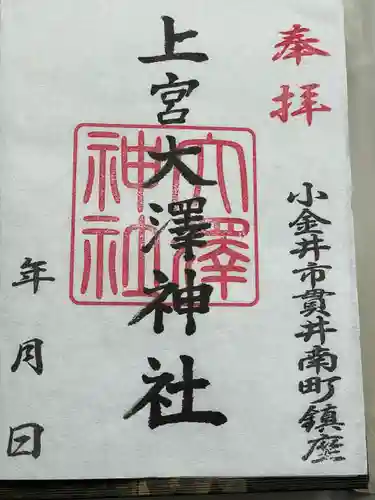 奉拝
小金井市貫井南町鎮座
上宮大澤神社
大澤神社
年月日